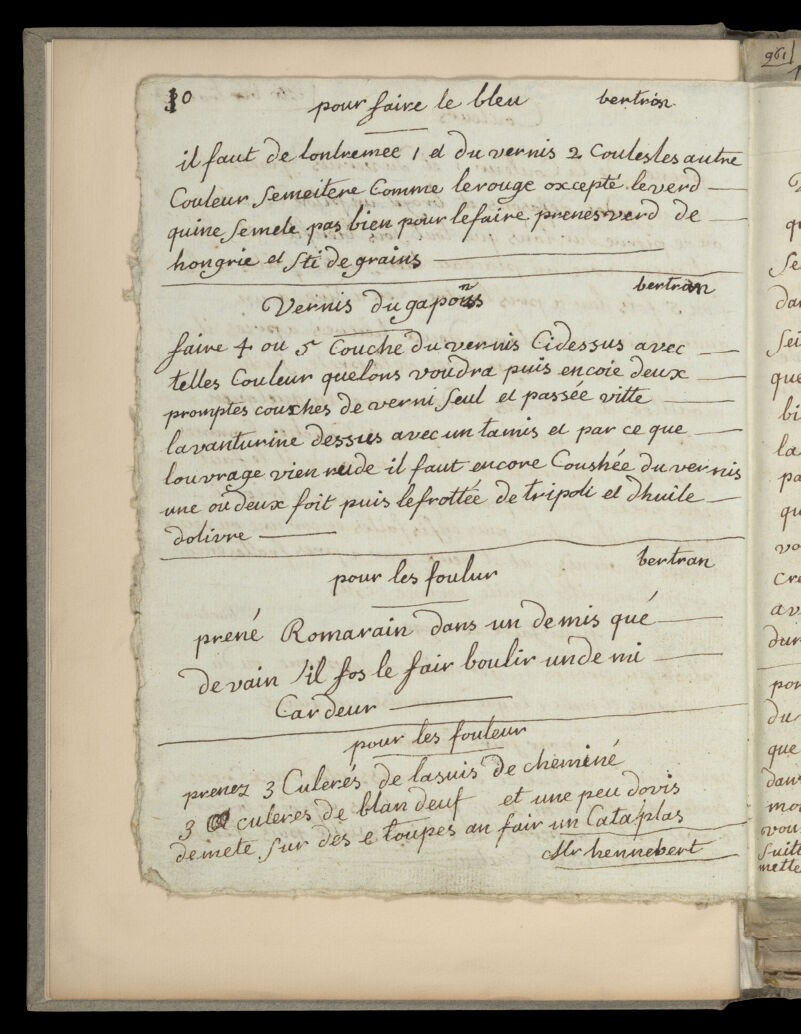 30
pour faire le bleu bertran
il faut de lontremee 1 et du vernis 2 Coulesles autre
Couleur semeitere Comme lerouge oxcepté leverd
quine semele pas bien pour lefaire prenes verd de
hongrie et sti de grains
Vernis du gapons bertran
faire 4 ou 5 Couche du vernis Cidessus avec
telles Couleur quelons voudra puis encoie deux
promptes couches de verni seul et passée vitte
lavanturine dessus avec un tamis et par ce que
louvrage vien rude il faut encore Coushée du vernis
une ou deux foit puis lefrottée de tripoli et dhuile
dolivre
pour les foulur bertran
prené Romarain dans un demis qué
de vain sil fos le fair boulir un de mi
Car deur
pour les fouleur
prenez 3 Culerés de lasuis de cheminé
3 culeres de blan deuf et une peu dovis
demete sur des e toupes an fair un Cataplas
Mr hennebert
961